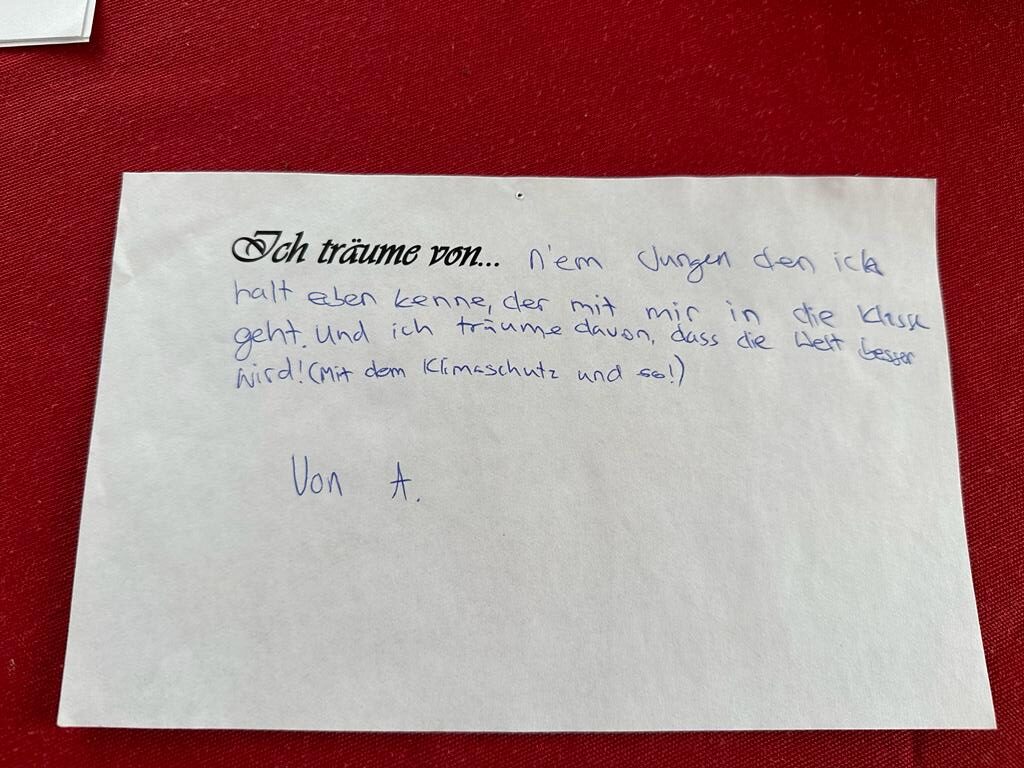 Ich träume von... n'em Jungen den ich
halt eben kenne, der mit mir in die Klasse
geht. Und ich träume davon, dass die Welt besser
wird! (Mit dem Klimaschutz und so!)
Von A.